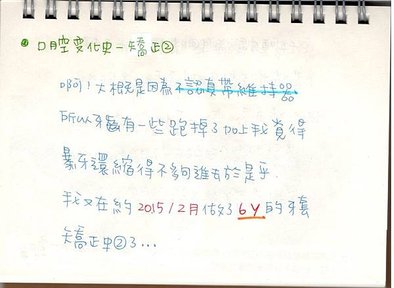 口腔变化史-矯正②
啊!大概是因為不認真帶維持器
所以牙齒有一些跑掉了加上我覺得
暴牙還縮得不夠進去於是乎
我又在約2015/2月做了6Y的牙套
矯正中②了...